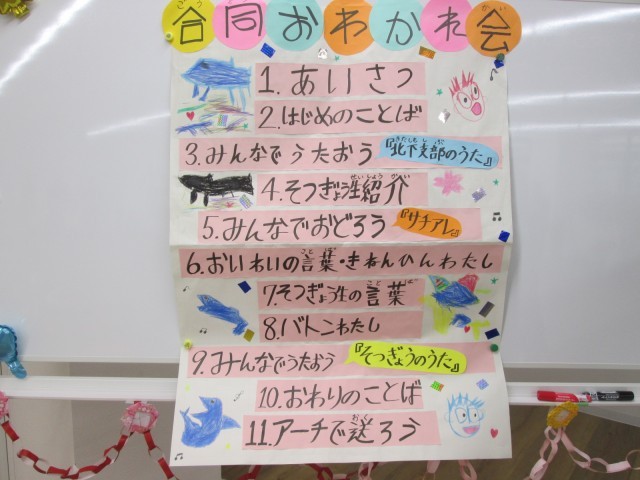 合同おわかれ会
1.あいさつ
2.はじめのことば
3.みんなでうたおう『北下支部のうた』
4.そつぎょう生紹介
5.みんなでおどろう『サチアレ』
6.おいわいの言葉・きねんひんわたし
7.そつぎょう生の言葉
8.バトンわたし
9.みんなでうたおう『そつぎょうのうた』
10.おわりのことば
11.アーチで送ろう